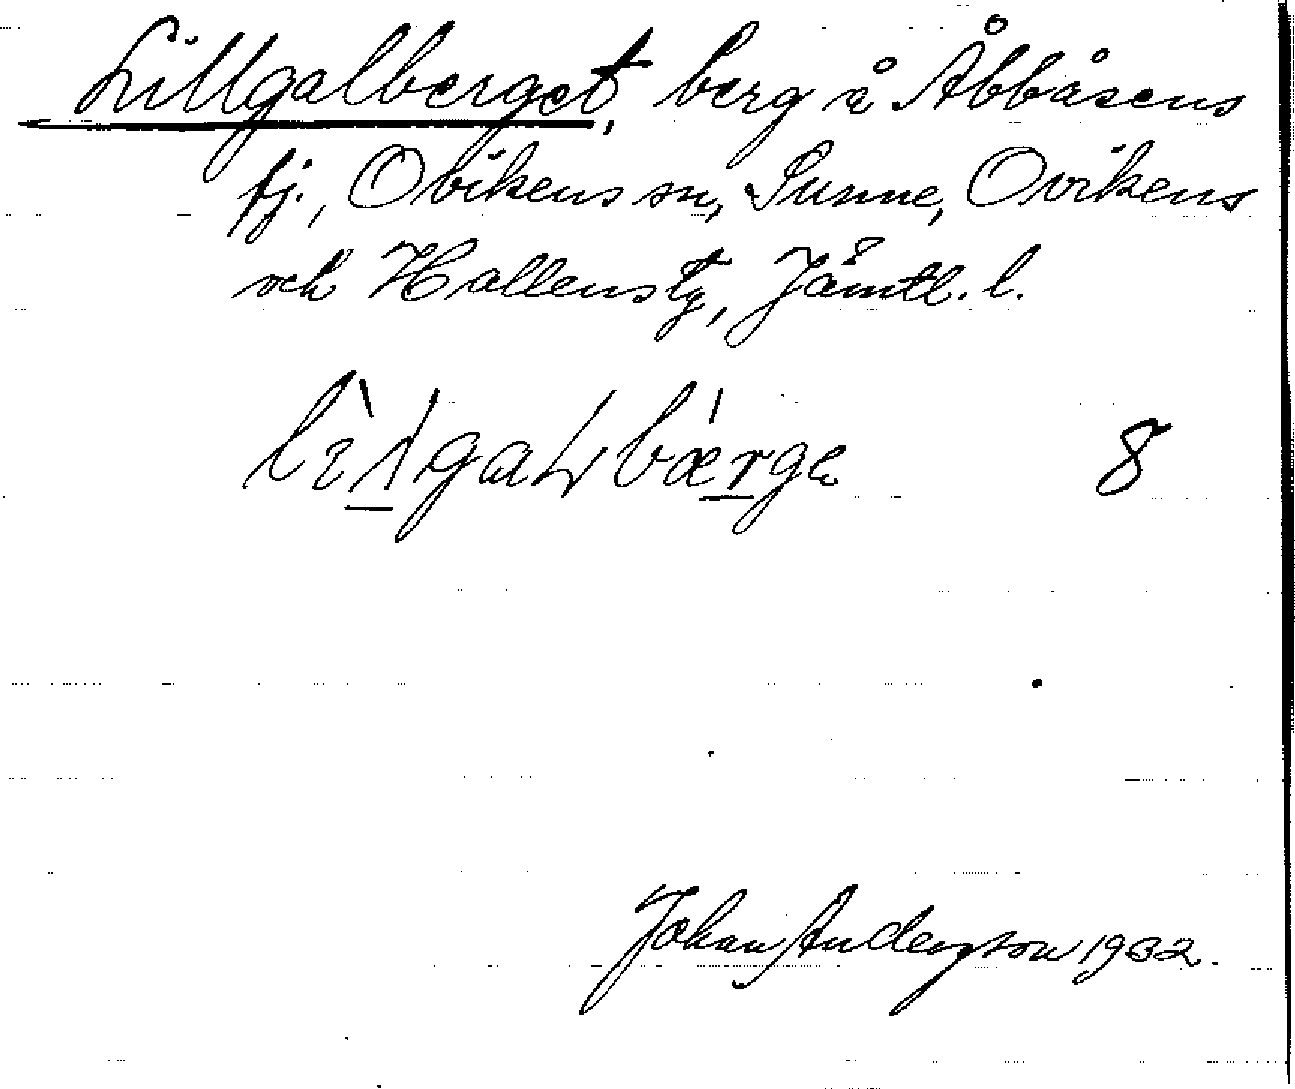 Lillgalberget, berg å Åbbåsens
fj., Ovikens sn, Sunne, Ovikens
och Hallens tg, Jämtl. l.
8
Johan Anderson 1932.